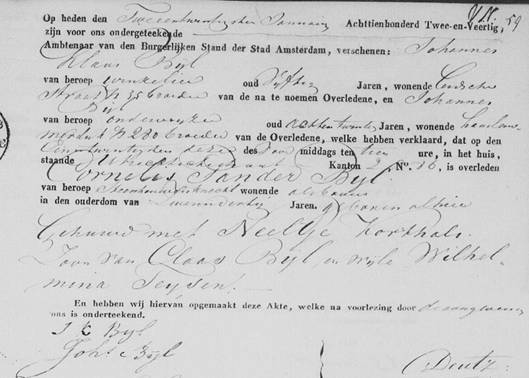 Op heden den Tweeentwintigsten Januarij Achttienhonderd Twee-en-Veertig, 59
zijn voor ons ondergeteekende
Ambtenaar van den Burgerlijken Stand der Stad Amsterdam, verschenen: Johannes
Klaas Bijl
van beroep winkelier oud Vijftig Jaren, wonende Leidsche
Straat N 35 broeder van de na te noemen Overledene, en Johannes
Bijl
van beroep onderwijzer oud achtentwintig Jaren, wonende
N 280 broeder van de Overledene, welke hebben verklaard, dat op den
Eenentwintigsten dezer des middags ten tien ure, in het huis,
staande Kanton 2 N°. 16, is overleden
Cornelis Sander Bijl
van beroep wonende alsboven
in den ouderdom van Jaren. geboren alhier
Gehuwd met Neeltje Korthals.
Zoon van Claas Bijl en wijle Wilhel-
mina Teijsen.
En hebben wij hiervan opgemaakt deze Akte, welke na voorlezing door
ons is onderteekend.
J K Bijl
Joh Bijl
Deutz